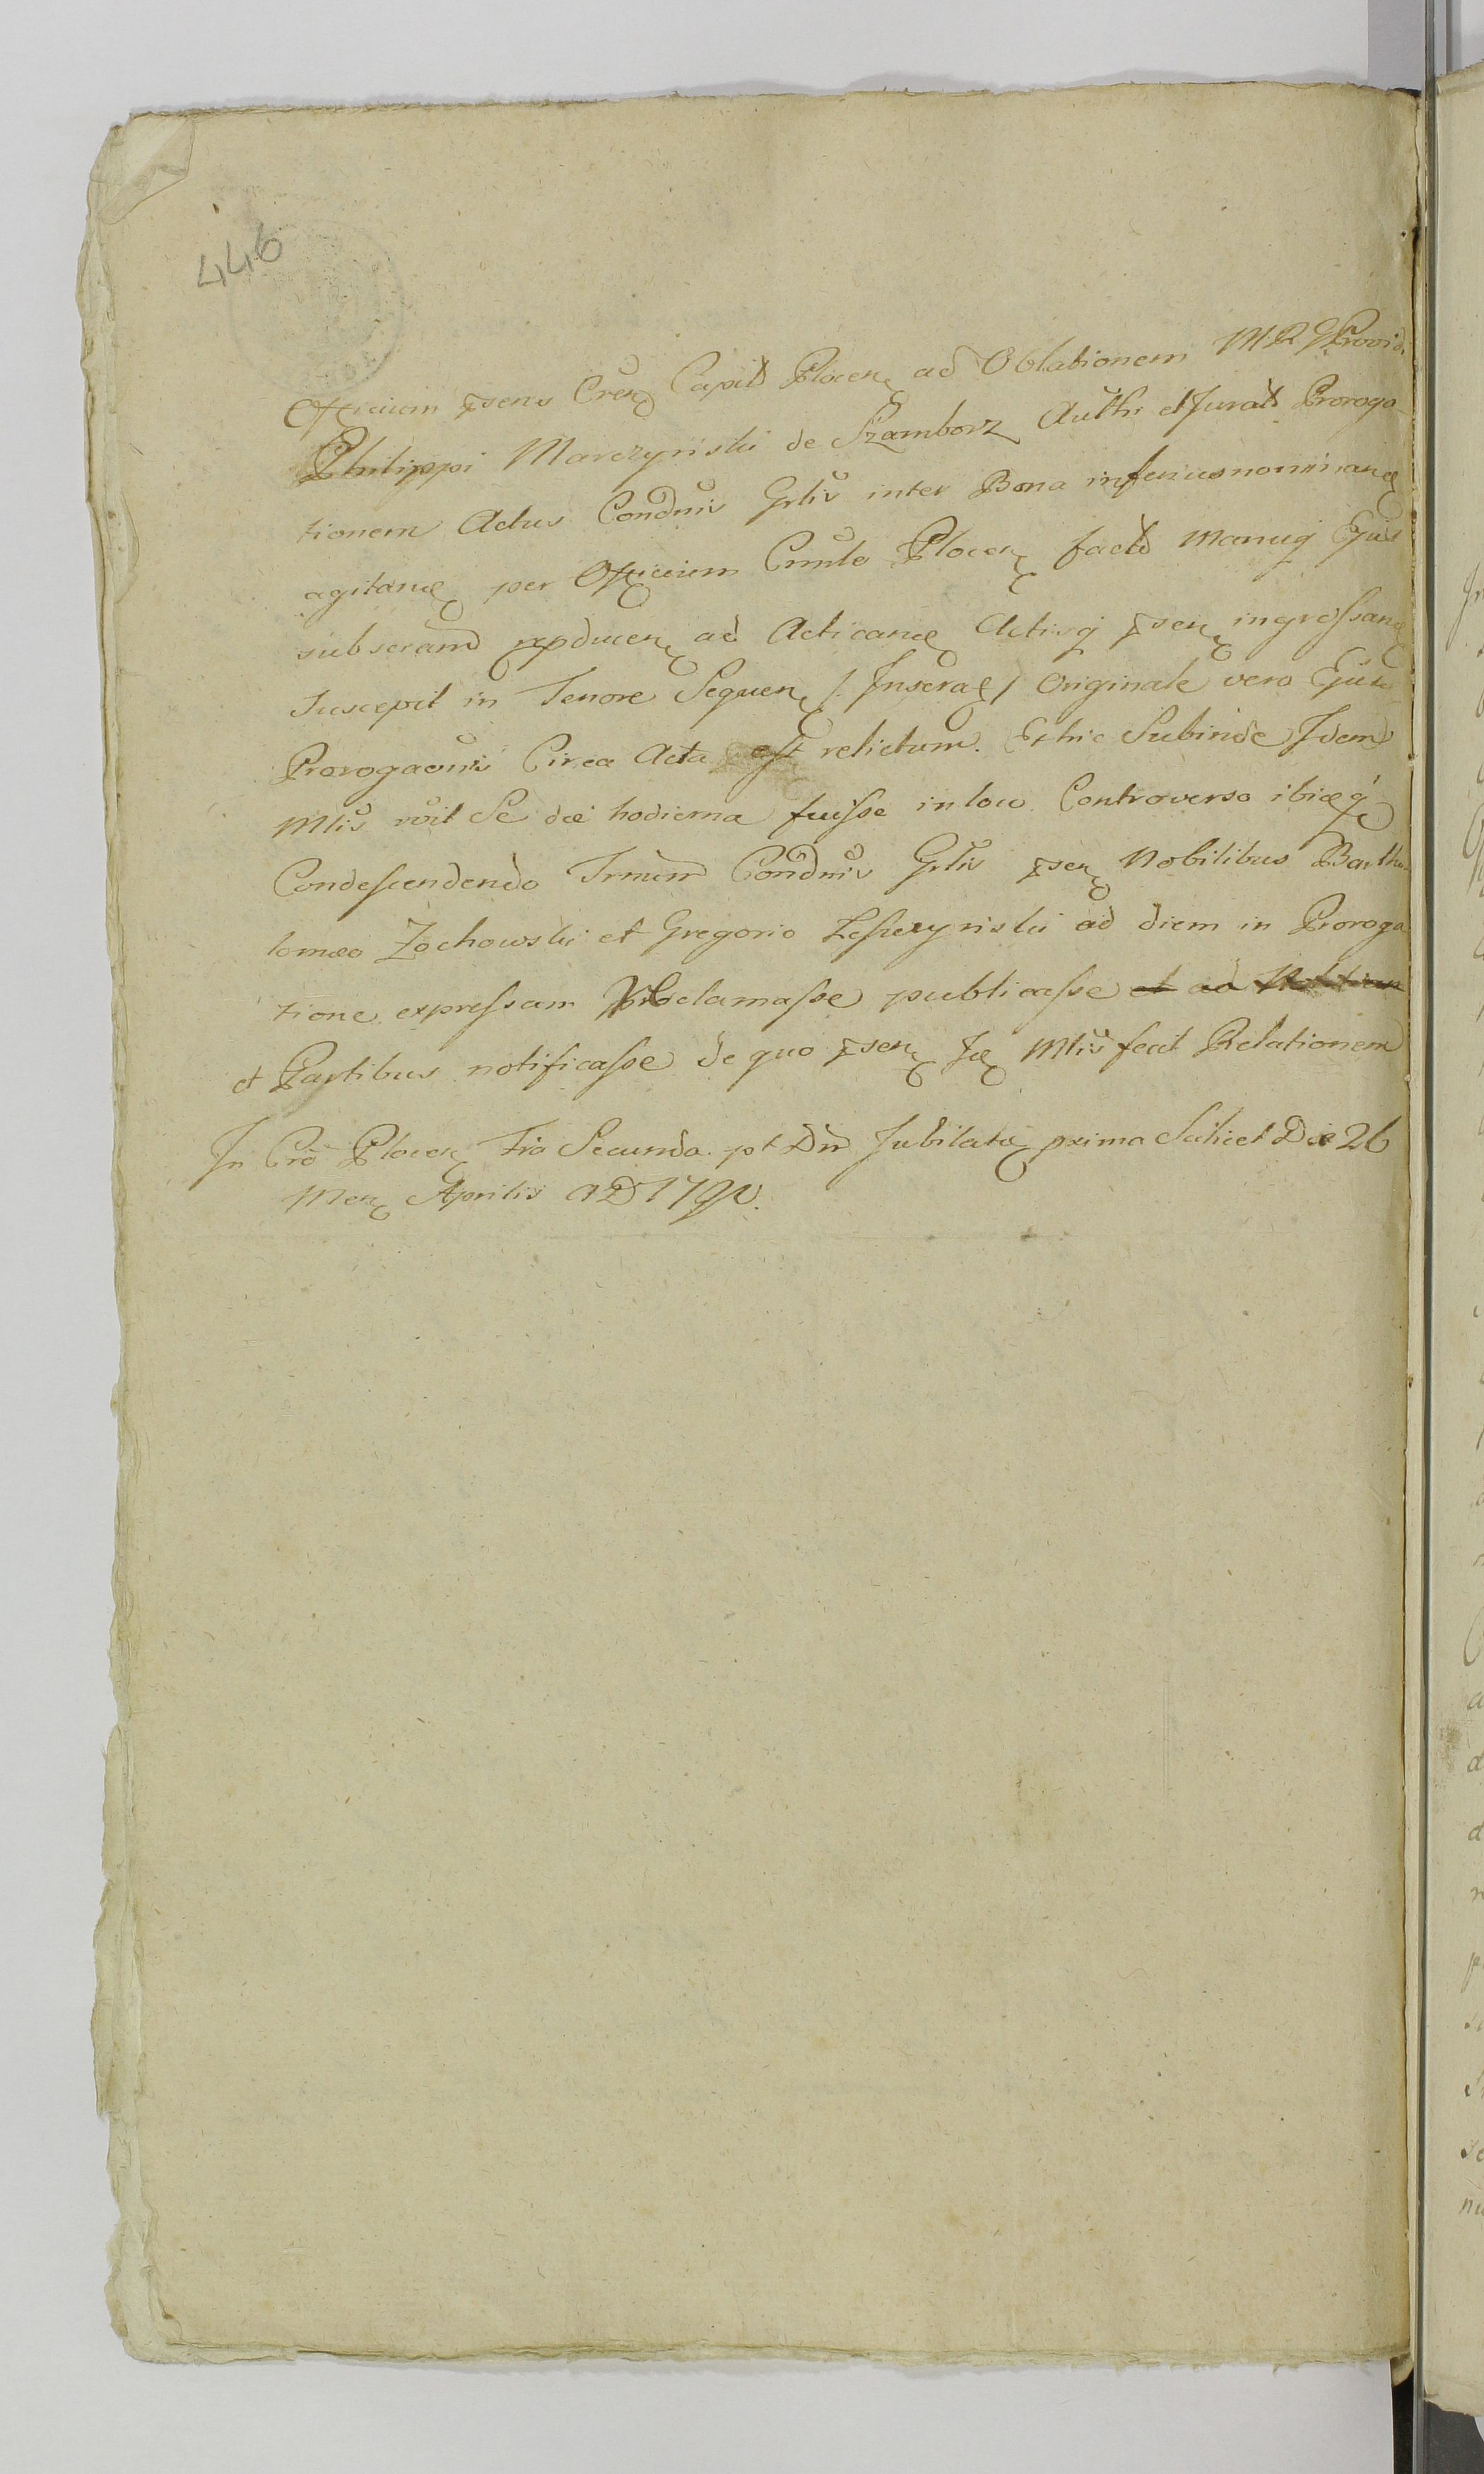 446
Officium psens Cren Capitt Plocen ad Oblationem MR Providi
Philippi Marczyński de Szamborz Auth et Juratt Proroga
tionem Actus Condnis Grlis inter Bona inferius nominan
agitand per Officium Cnnle Plocen factt manuq Ejus
subscram repducen ad Acticand Actisq psen ingrossand
suscepit in Tenore Sequen /: Inserat / Originale vero Ejus
Prorogaonis Circa Acta est relictum. Et hic Subinde Idem
Mlis roit Se die hodierna fuisse in loco Controverso ibidq
Condescendendo Trnum Condnis Grlis psen Nobilibus Bartho
lomæo Zochowski et Gregorio Leszczyński ad diem in Proroga
tione expressam Proclamasse publicasse et ad
et Partibus notificasse de quo psen Id Mlis fecit Relationem
In Cro Plocen Fria Secunda pt Dn Jubilate prima Scilicet Die 26
Men Aprilis AD 179